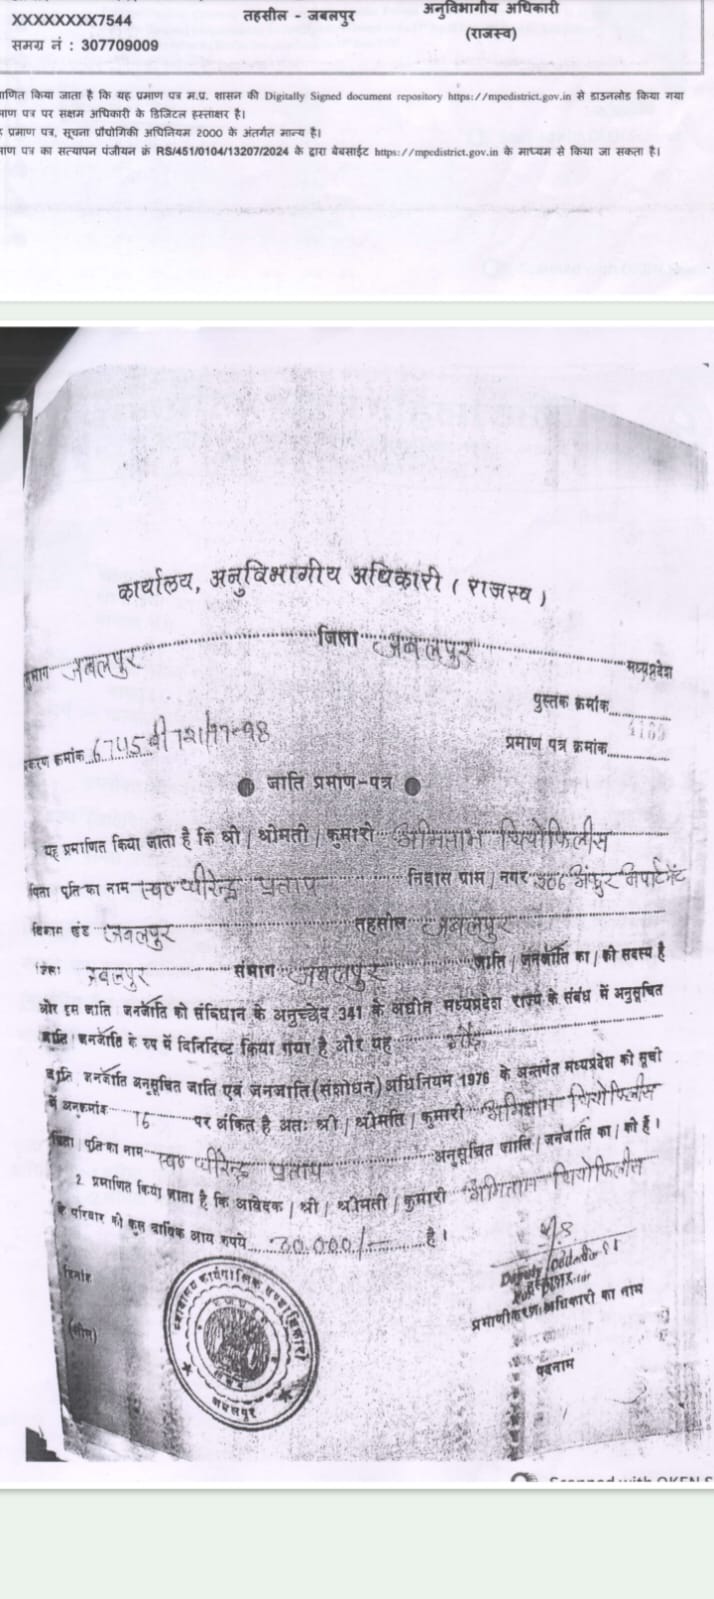 XXXXXXXX7544
तहसील - जबलपुर
अनुविभागीय अधिकारी
(राजस्व)
समग्र नं : 307709009
किया जाता है कि यह प्रमाण पत्र म.प्र. शासन की Digitally Signed document repository https://mpedistrict.gov.in से डाउनलोड किया गया
पत्र पर सक्षम अधिकारी के डिजिटल हस्ताक्षर है।
प्रमाण पत्र, सूचना प्रौद्योगिकी अधिनियम 2000 के अंतर्गत मान्य है।
पत्र का सत्यापन पंजीयन क्रं RS/451/0104/13207/2024 के द्वारा वेबसाईट https://mpedistrict.gov.in के माध्यम से किया जा सकता है।
कार्यालय, अनुविभागीय अधिकारी (राजस्व)
जबलपुर जिला जबलपुर मध्यप्रदेश
पुस्तक क्रमांक
क्रमांक 6745 बी 121/97-98
प्रमाण पत्र क्रमांक
जाति प्रमाण-पत्र
यह प्रमाणित किया जाता है कि श्री / श्रीमती / कुमारी अमिताभ थियोफिलीस
पिता / पति का नाम स्व० धीरेन्द्र प्रताप निवास ग्राम / नगर 306 अपार्टमेंट
विकास खंड जबलपुर तहसील जबलपुर
जिला जबलपुर संभाग जबलपुर जाति / जनजाति का / की सदस्य है
और इस जाति जनजाति को संविधान के अनुच्छेद 341 के अधीन मध्यप्रदेश राज्य के संबंध में अनुसूचित
जाति / जनजाति के रूप में विनिर्दिष्ट किया गया है और यह
जाति / जनजाति अनुसूचित जाति एवं जनजाति (संशोधन) अधिनियम 1976 के अन्तर्गत मध्यप्रदेश की सूची
में अनुक्रमांक 16 पर अंकित है अतः श्री / श्रीमति / कुमारी अमिताभ थियोफिलीस
पिता / पति का नाम स्व० धीरेन्द्र प्रताप अनुसूचित जाति / जनजाति का / की हैं।
2. प्रमाणित किया जाता है कि आवेदक / श्री / श्रीमती / कुमारी अमिताभ थियोफिलीस
के परिवार की कुल वार्षिक आय रुपये 30.000/- है।
दिनांक
हस्ताक्षर
प्रमाणीकरण अधिकारी का नाम
(सील)
पदनाम
जबलपुर